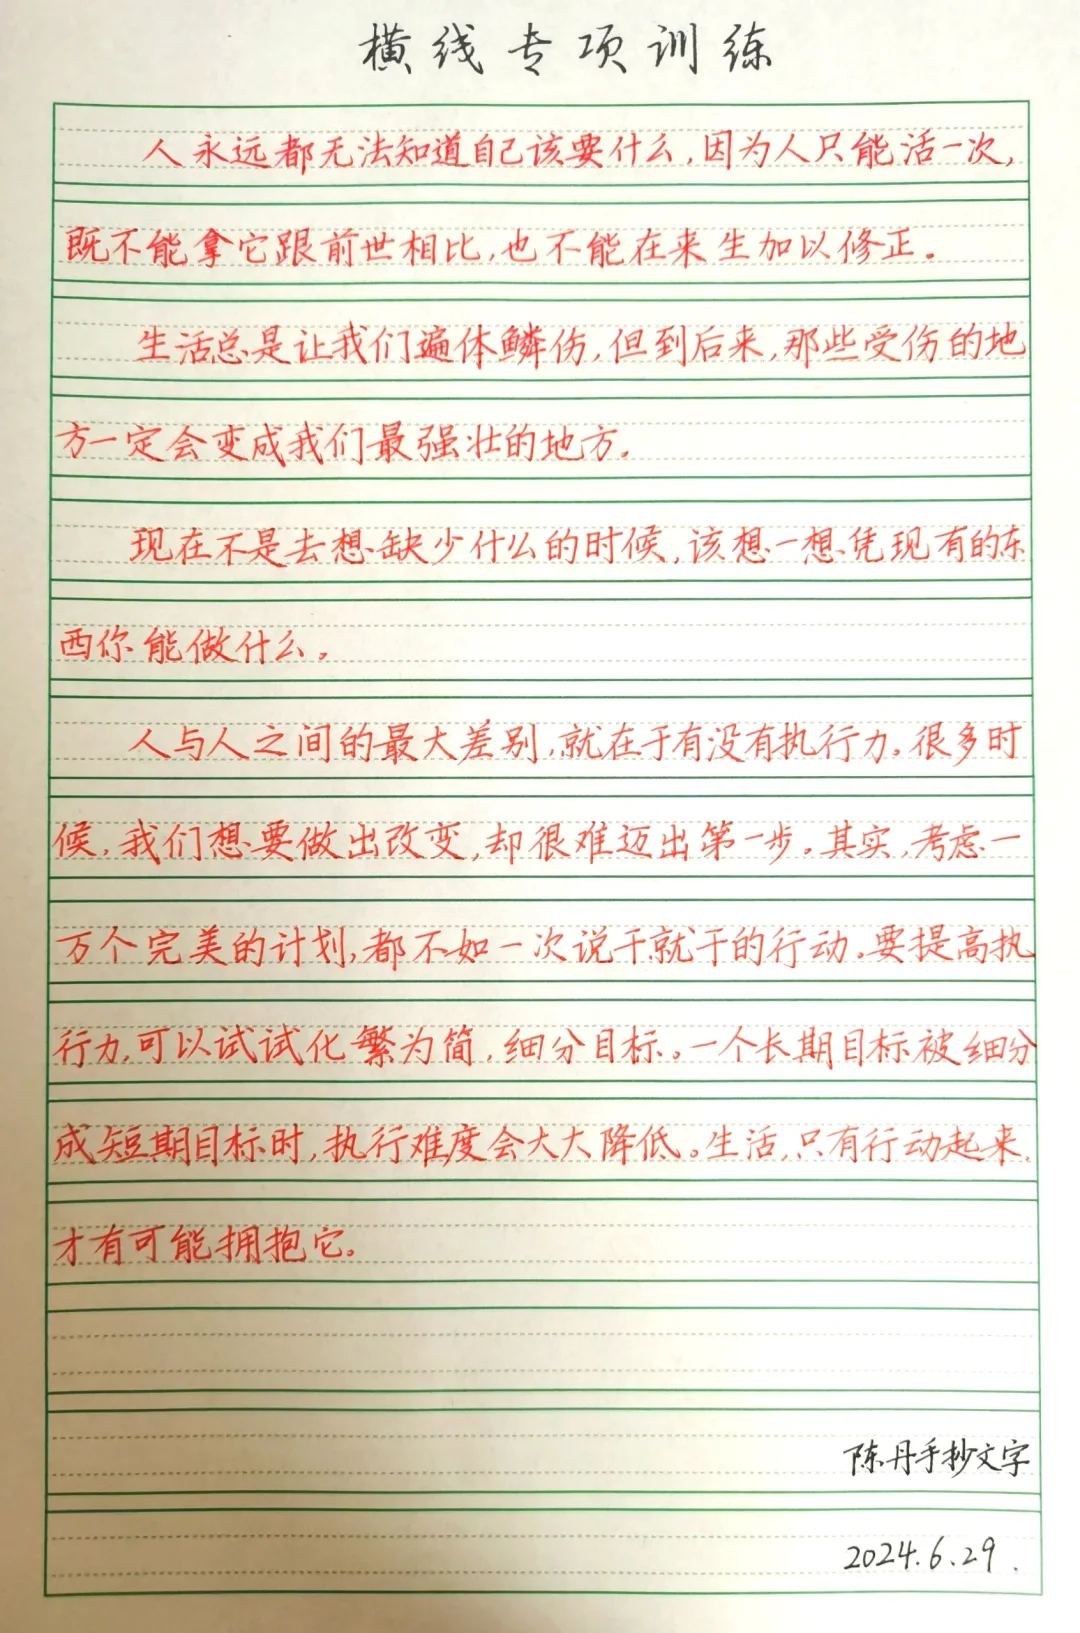 横线专项训练
人永远都无法知道自己该要什么,因为人只能活一次,
既不能拿它跟前世相比,也不能在来生加以修正。
生活总是让我们遍体鳞伤,但到后来,那些受伤的地
方一定会变成我们最强壮的地方。
现在不是去想缺少什么的时候,该想一想凭现有的东
西你能做什么。
人与人之间的最大差别,就在于有没有执行力。很多时
候,我们想要做出改变,却很难迈出第一步。其实,考虑一
万个完美的计划,都不如一次说干就干的行动。要提高执
行力,可以试试化繁为简,细分目标。一个长期目标被细分
成短期目标时,执行难度会大大降低。生活,只有行动起来,
才有可能拥抱它。
陈丹手抄文字
2024.6.29.